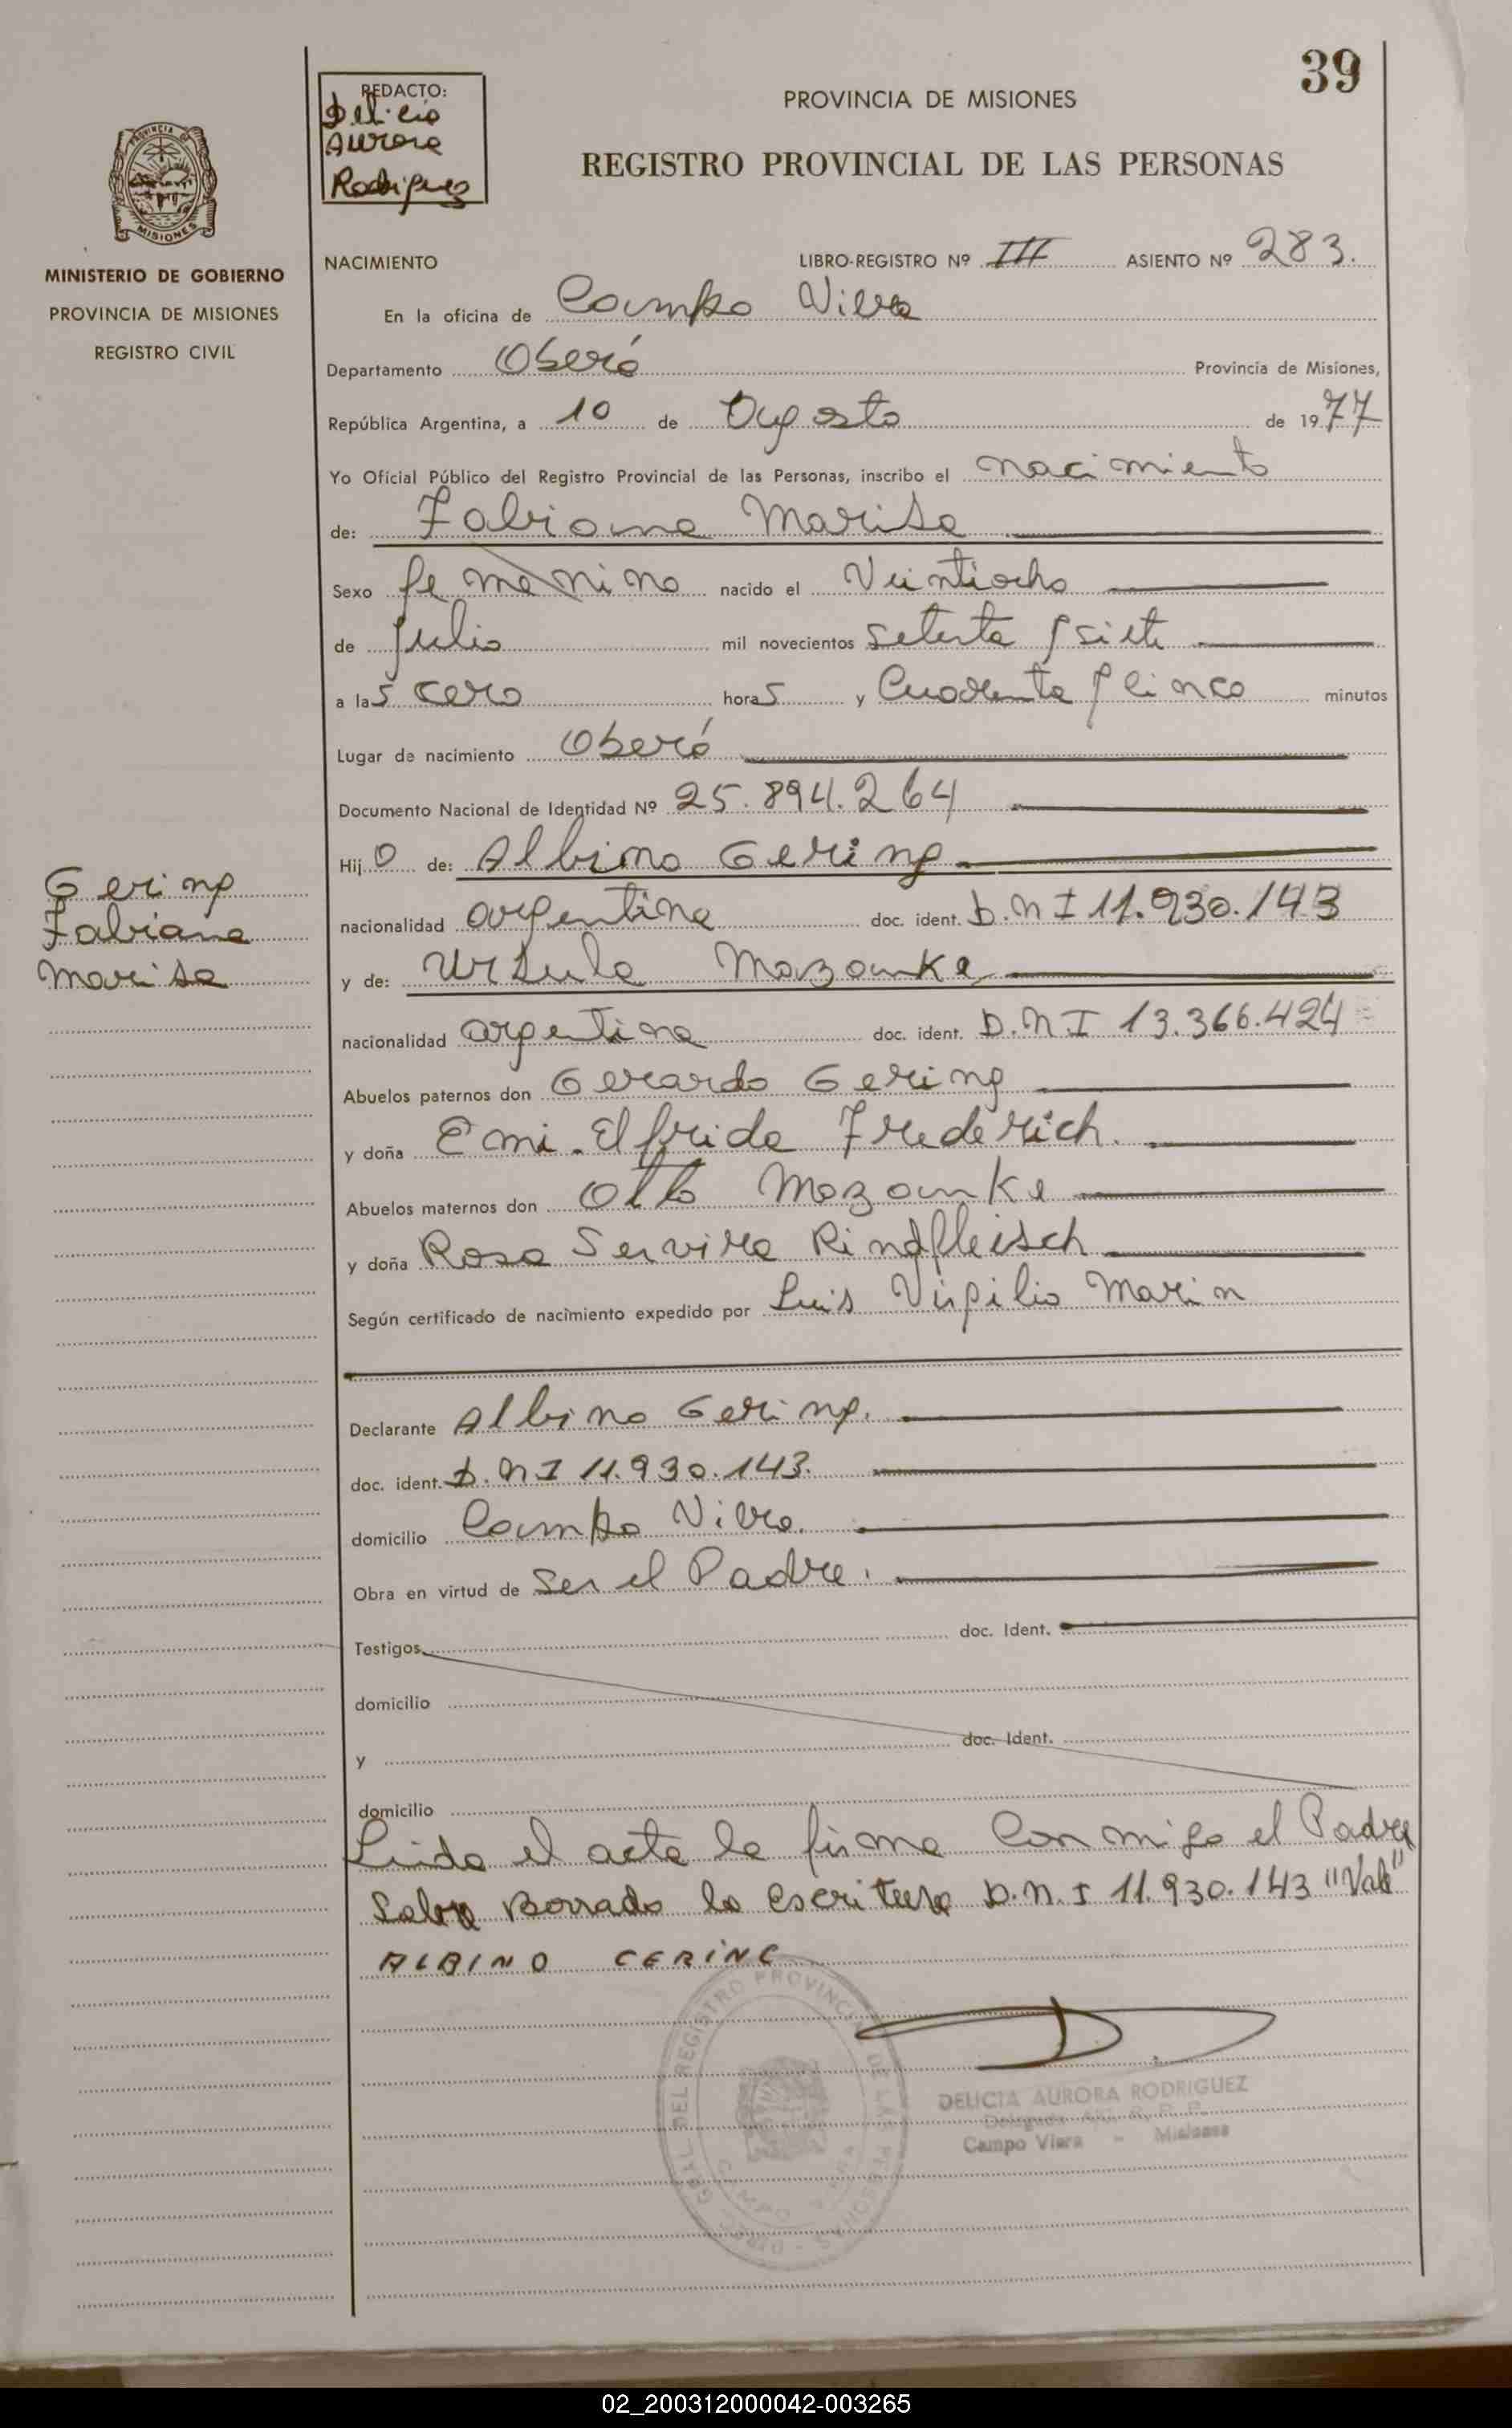 39
REDACTO:
Delicia
Aurora
Rodriguez
PROVINCIA DE MISIONES
REGISTRO PROVINCIAL DE LAS PERSONAS
PROVINCIA DE
MISIONES
MINISTERIO DE GOBIERNO
PROVINCIA DE MISIONES
REGISTRO CIVIL
NACIMIENTO LIBRO-REGISTRO Nº III ASIENTO Nº 283.
En la oficina de Campo Viera
Departamento Oberá Provincia de Misiones,
República Argentina, a 10 de Agosto de 1977
Yo Oficial Público del Registro Provincial de las Personas, inscribo el nacimiento
de: Fabiana Marisa
Sexo femenino nacido el Veintiocho
de Julio mil novecientos setenta y siete
a las cero horas y Cuarenta y cinco minutos
Lugar de nacimiento Oberá
Documento Nacional de Identidad Nº 25.894.264
Hijo de: Albino Gering
nacionalidad argentina doc. ident. D.N I 11.930.143
y de: Ursula Mazanke
nacionalidad argentina doc. ident. D.N I 13.366.424
Abuelos paternos don Gerardo Gering
y doña Emi. Elfrida Frederich.
Abuelos maternos don Otto Mazanke
y doña Rosa Servira Rindfleisch
Según certificado de nacimiento expedido por Luis Virgilio Marin
Gering
Fabiana
Marisa
Declarante Albino Gering.
doc. ident. D.N I 11.930.143.
domicilio Campo Viera.
Obra en virtud de Ser el Padre.
Testigos doc. Ident.
domicilio
y doc. Ident.
domicilio
Leida el acta la firma Con migo el Padre
Sobre Borrado la escritura D.N.I 11.930.143 "Vale"
ALBINO GERING
DELICIA AURORA RODRIGUEZ
R. P. P.
Campo Viera - Misiones
GRAL. DEL REGISTRO PROVINCIAL DE LAS PERSONAS
CAMPO VIERA
02_200312000042-003265